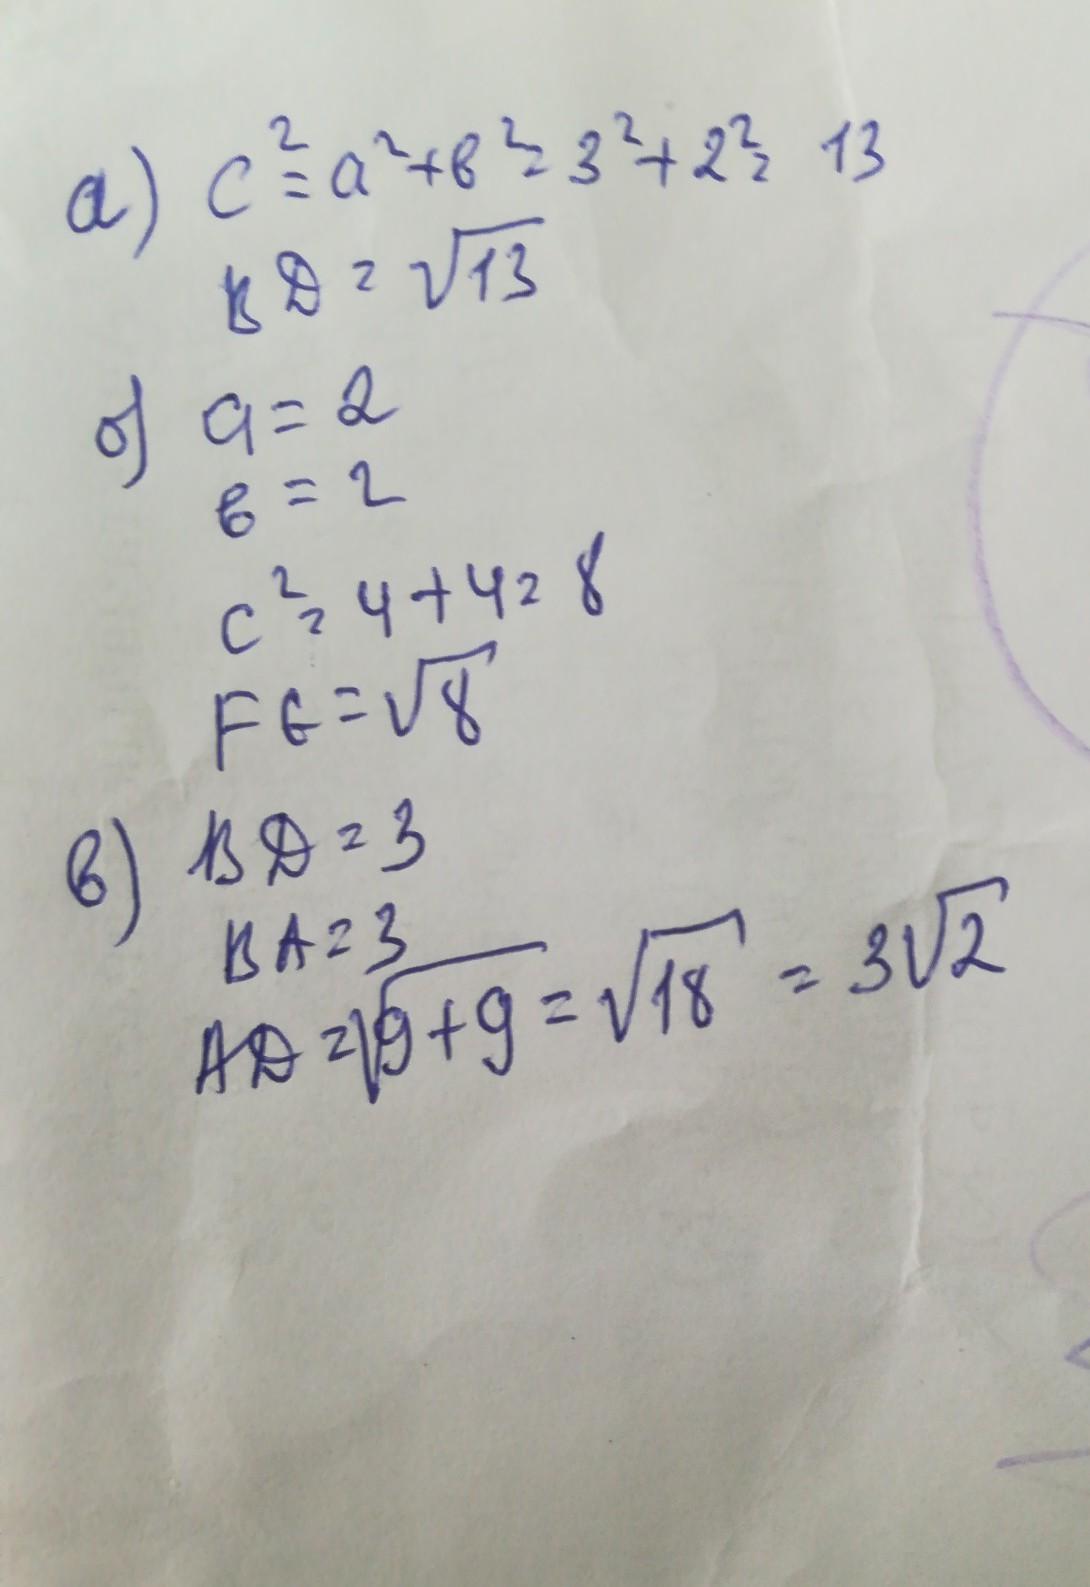 а) c² = a² + b² = 3² + 2² = 13
BD = √13
б) a = 2
b = 2
c² = 4 + 4 = 8
FE = √8
в) BD = 3
BA = 3
AD = √9+9 = √18 = 3√2